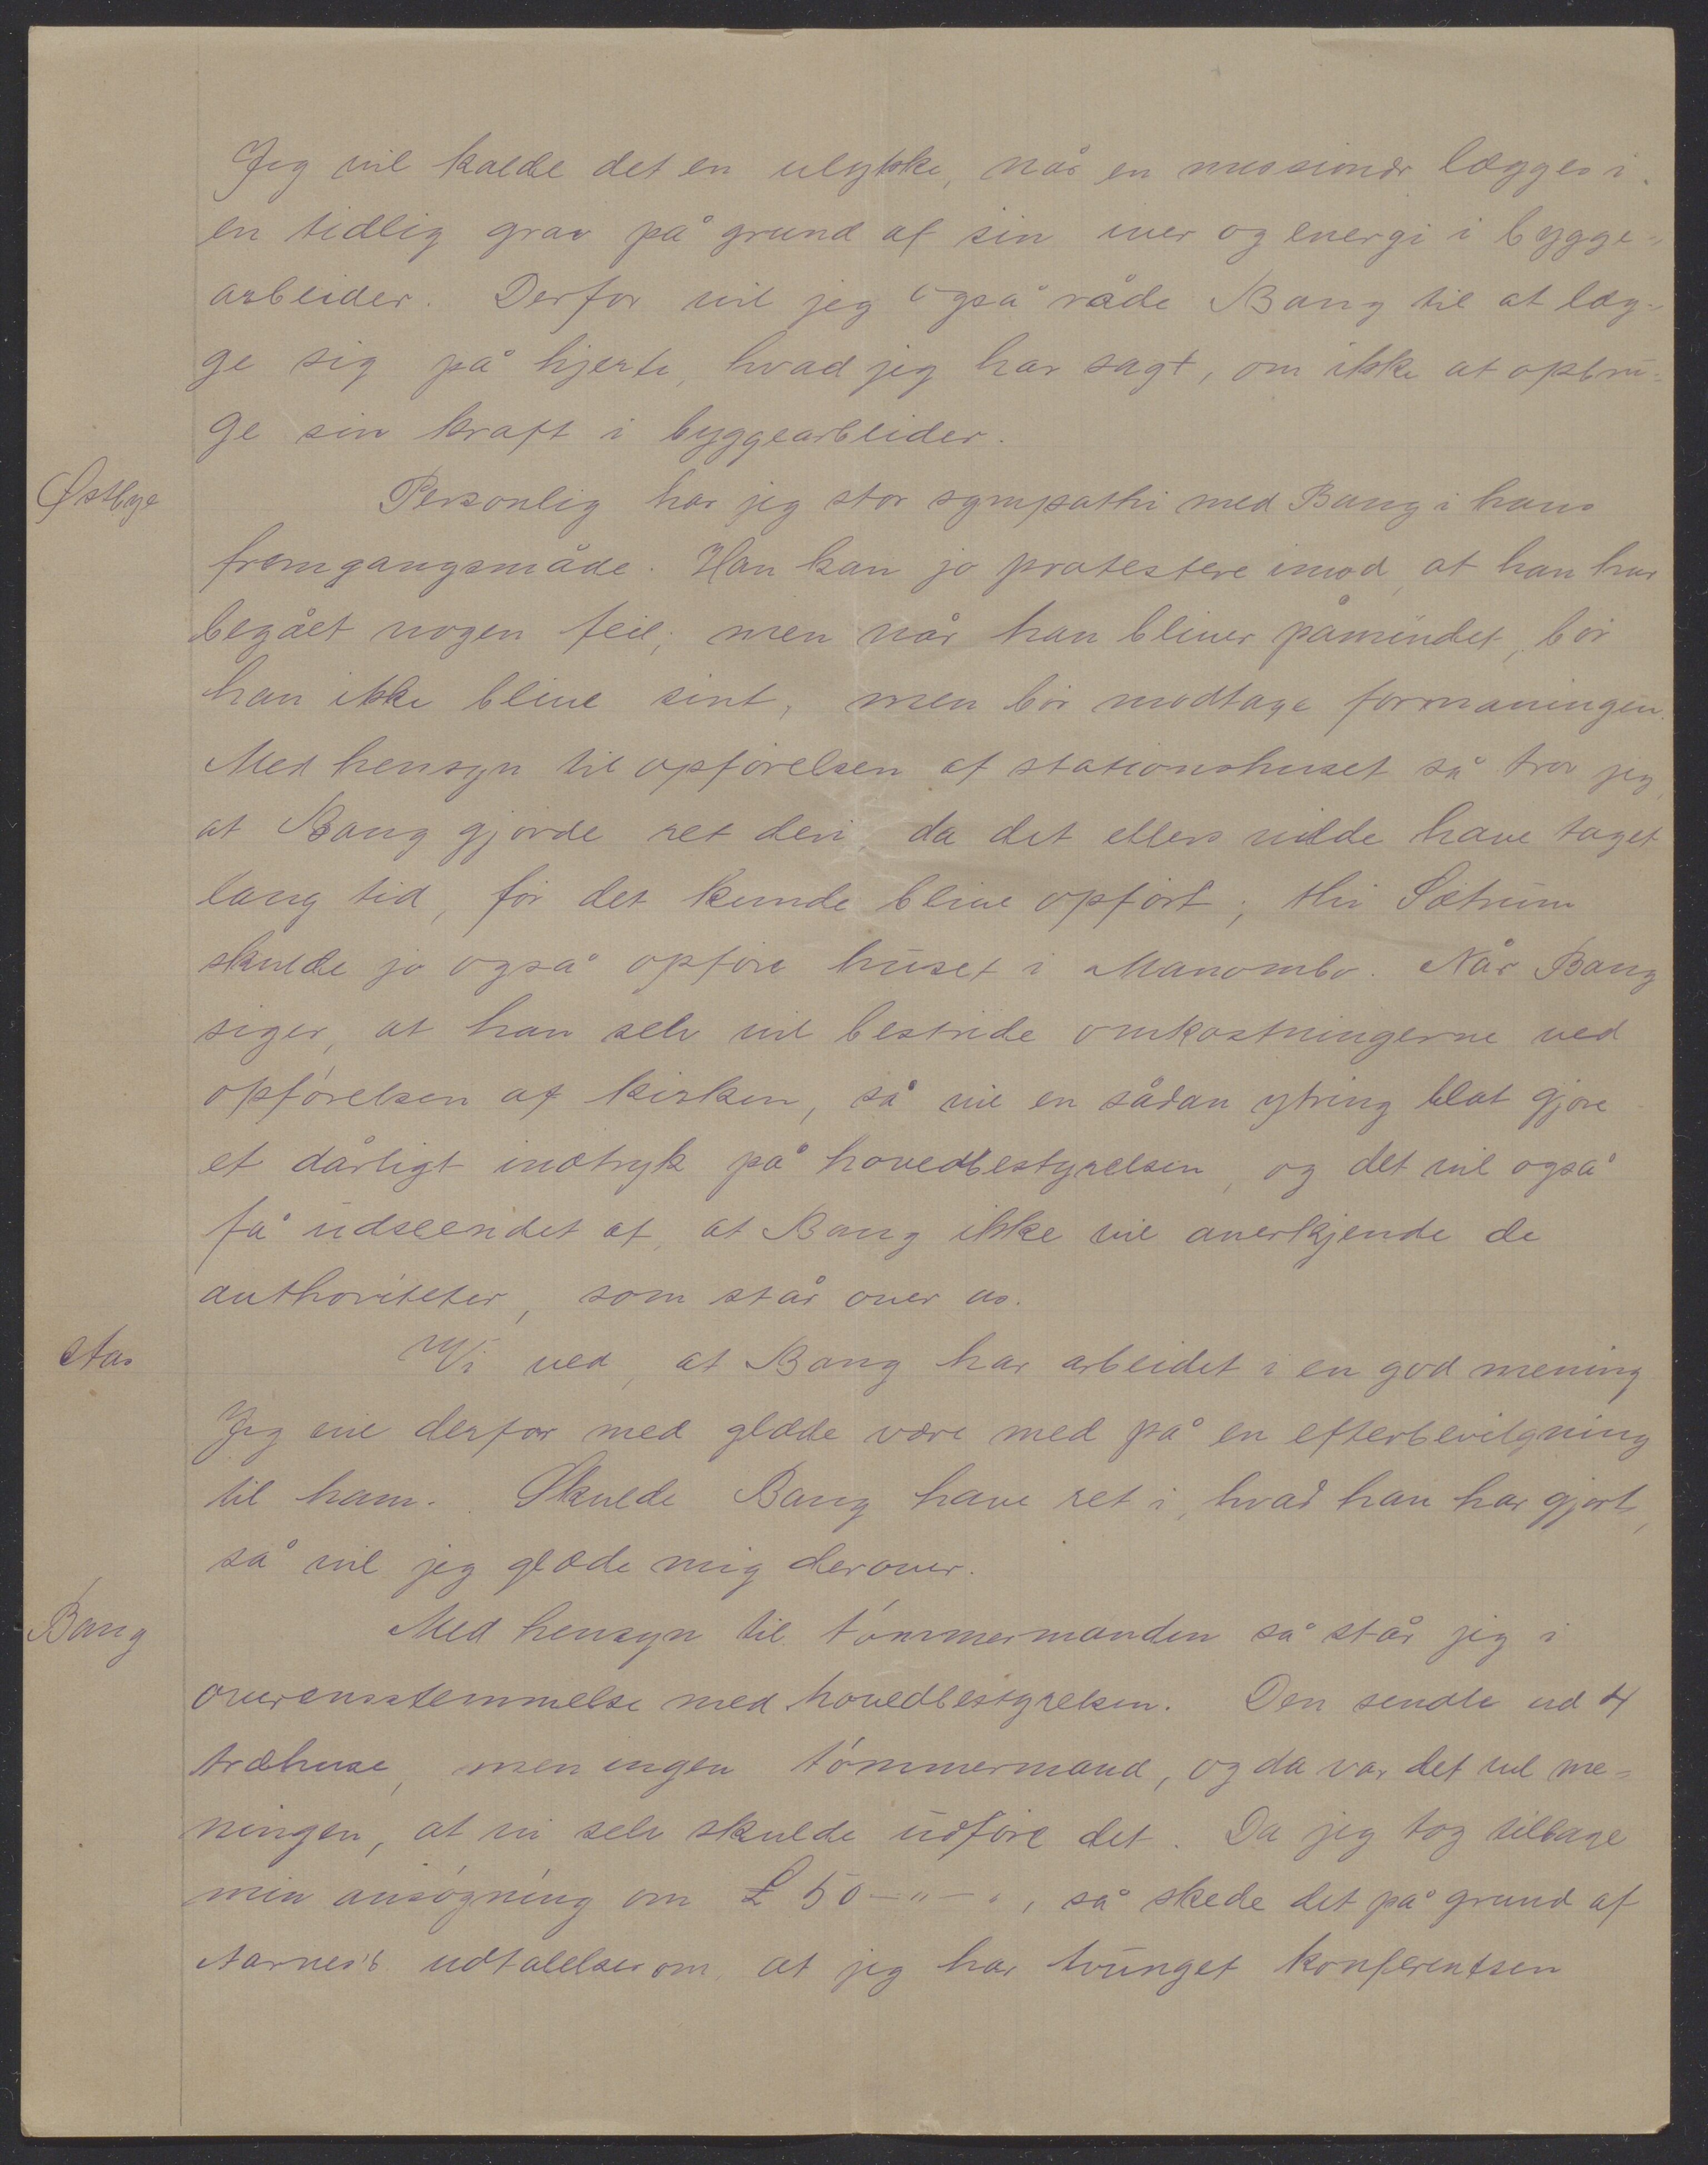 Jeg vil kalde det en ulykke, når en missionær lægges i
en tidlig grav på grund af sin iver og energi i bygge=
arbeider. Derfor vil jeg også råde Bang til at læg=
ge sig på hjerte, hvad jeg har sagt, om ikke at opbru=
ge sin kraft i byggearbeider.
Østbye Personlig har jeg stor sympathi med Bang i hans
fremgangsmåde. Han kan jo protestere imod, at han har
begået nogen feil; men når han bliver påmindet, bör
han ikke blive sint, men bör modtage formaningen.
Med hensyn til opförelsen af stationshuset så tror jeg,
at Bang gjorde ret deri, da det ellers vilde have taget
lang tid, för det kunde blive opfört; thi Sætrum
skulde jo også opföre huset i Manombo. Når Bang
siger, at han selv vil bestride omkostningerne ved
opförelsen af kirken, så vil en sådan ytring blot gjöre
et dårligt indtryk på hovedbestyrelsen, og det vil også
få udseendet af, at Bang ikke vil anerkjende de
authoriteter, som står over os.
Aas Vi ved, at Bang har arbeidet i en god mening
Jeg vil derfor med glæde være med på en efterbevilgning
til ham. Skulde Bang have ret i, hvad han har gjort,
så vil jeg glæde mig derover.
Bang Med hensyn til tömmermanden så står jeg i
overensstemmelse med hovedbestyrelsen. Den sendte ud 4
træhuse, men ingen tömmermand, og da var det vel me=
ningen, at vi selv skulde udföre det. Da jeg tog tilbage
min ansögning om £ 50-"-", så skede det på grund af
Aarnes's udtalelser om, at jeg har tvunget konferentsen